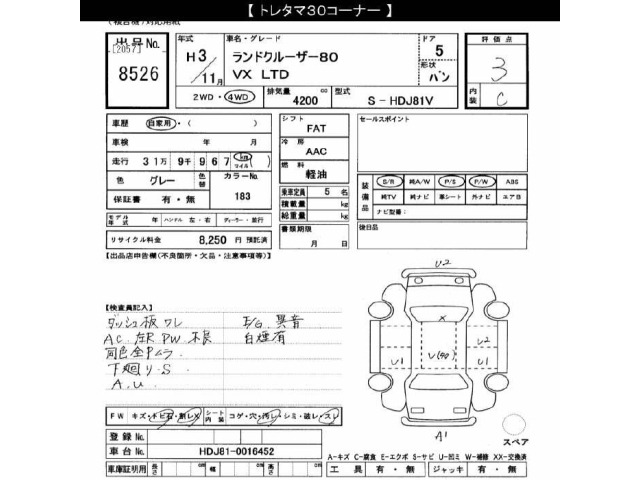 【 トレタマ30コーナー 】
(複合機)対応用紙
出品No.
[2057]
8526
年式
H 3 / 11月
車名・グレード
ランドクルーザー80
VX LTD
ドア
5
形状
バン
評価点
3
内装
C
2WD・4WD
排気量
4200 cc
型式
S - HDJ81V
車歴 自家用・( )
車検 年 月
走行 31万 9千 9 6 7 km マイル
色 グレー
色替
カラーNo.
183
保証書 有・無
モデル年式 年 ハンドル 左・右 ディーラー・並行
リサイクル料金 8,250 円 預託済
シフト
FAT
冷房
AAC
燃料
軽油
乗車定員 5 名
積載量 kg
総重量 kg
書類期限
月 日
セールスポイント
装備品
S/R 純A/W P/S P/W ABS
純TV 純ナビ 革シート 外ナビ エアB
ナビ型番:
後日品
【出品店申告欄(不良箇所・欠品・注意事項等)】
【検査員記入】
ダッシュ板ワレ
AC 左R PW 不良
同色全Pムラ
下廻り-S
A.U
E/G 異音
白煙有
U2
X
U2
U1
U(90)
U1
A1
スペア
FW キズ・トビ石・割レX
シート内装 コゲ・穴・汚レ・シミ・破レ・スレ
登録No.
車台No. HDJ81-0016452
A-キズ C-腐食 E-エクボ S-サビ U-凹ミ W-補修 XX-交換済
車庫証明用 長さ cm 幅 cm 高さ cm
工具 有・無 ジャッキ 有・無